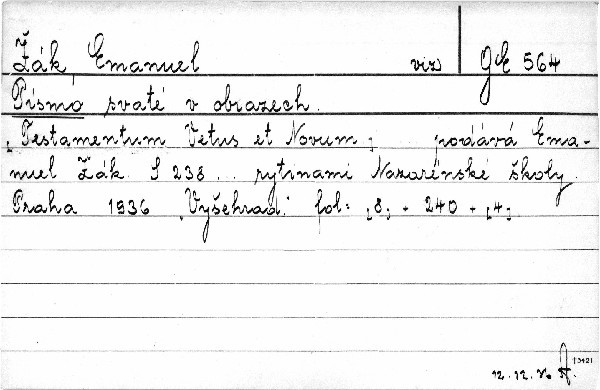 Žák Emanuel viz gE 564
Písmo svaté v obrazech.
[Testamentum Vetus et Novum] podává Ema-
nuel Žák. S 238 ... rytinami Nazarénské školy.
Praha 1936 "Vyšehrad." fol: [8] + 240 + [4]
12.12.